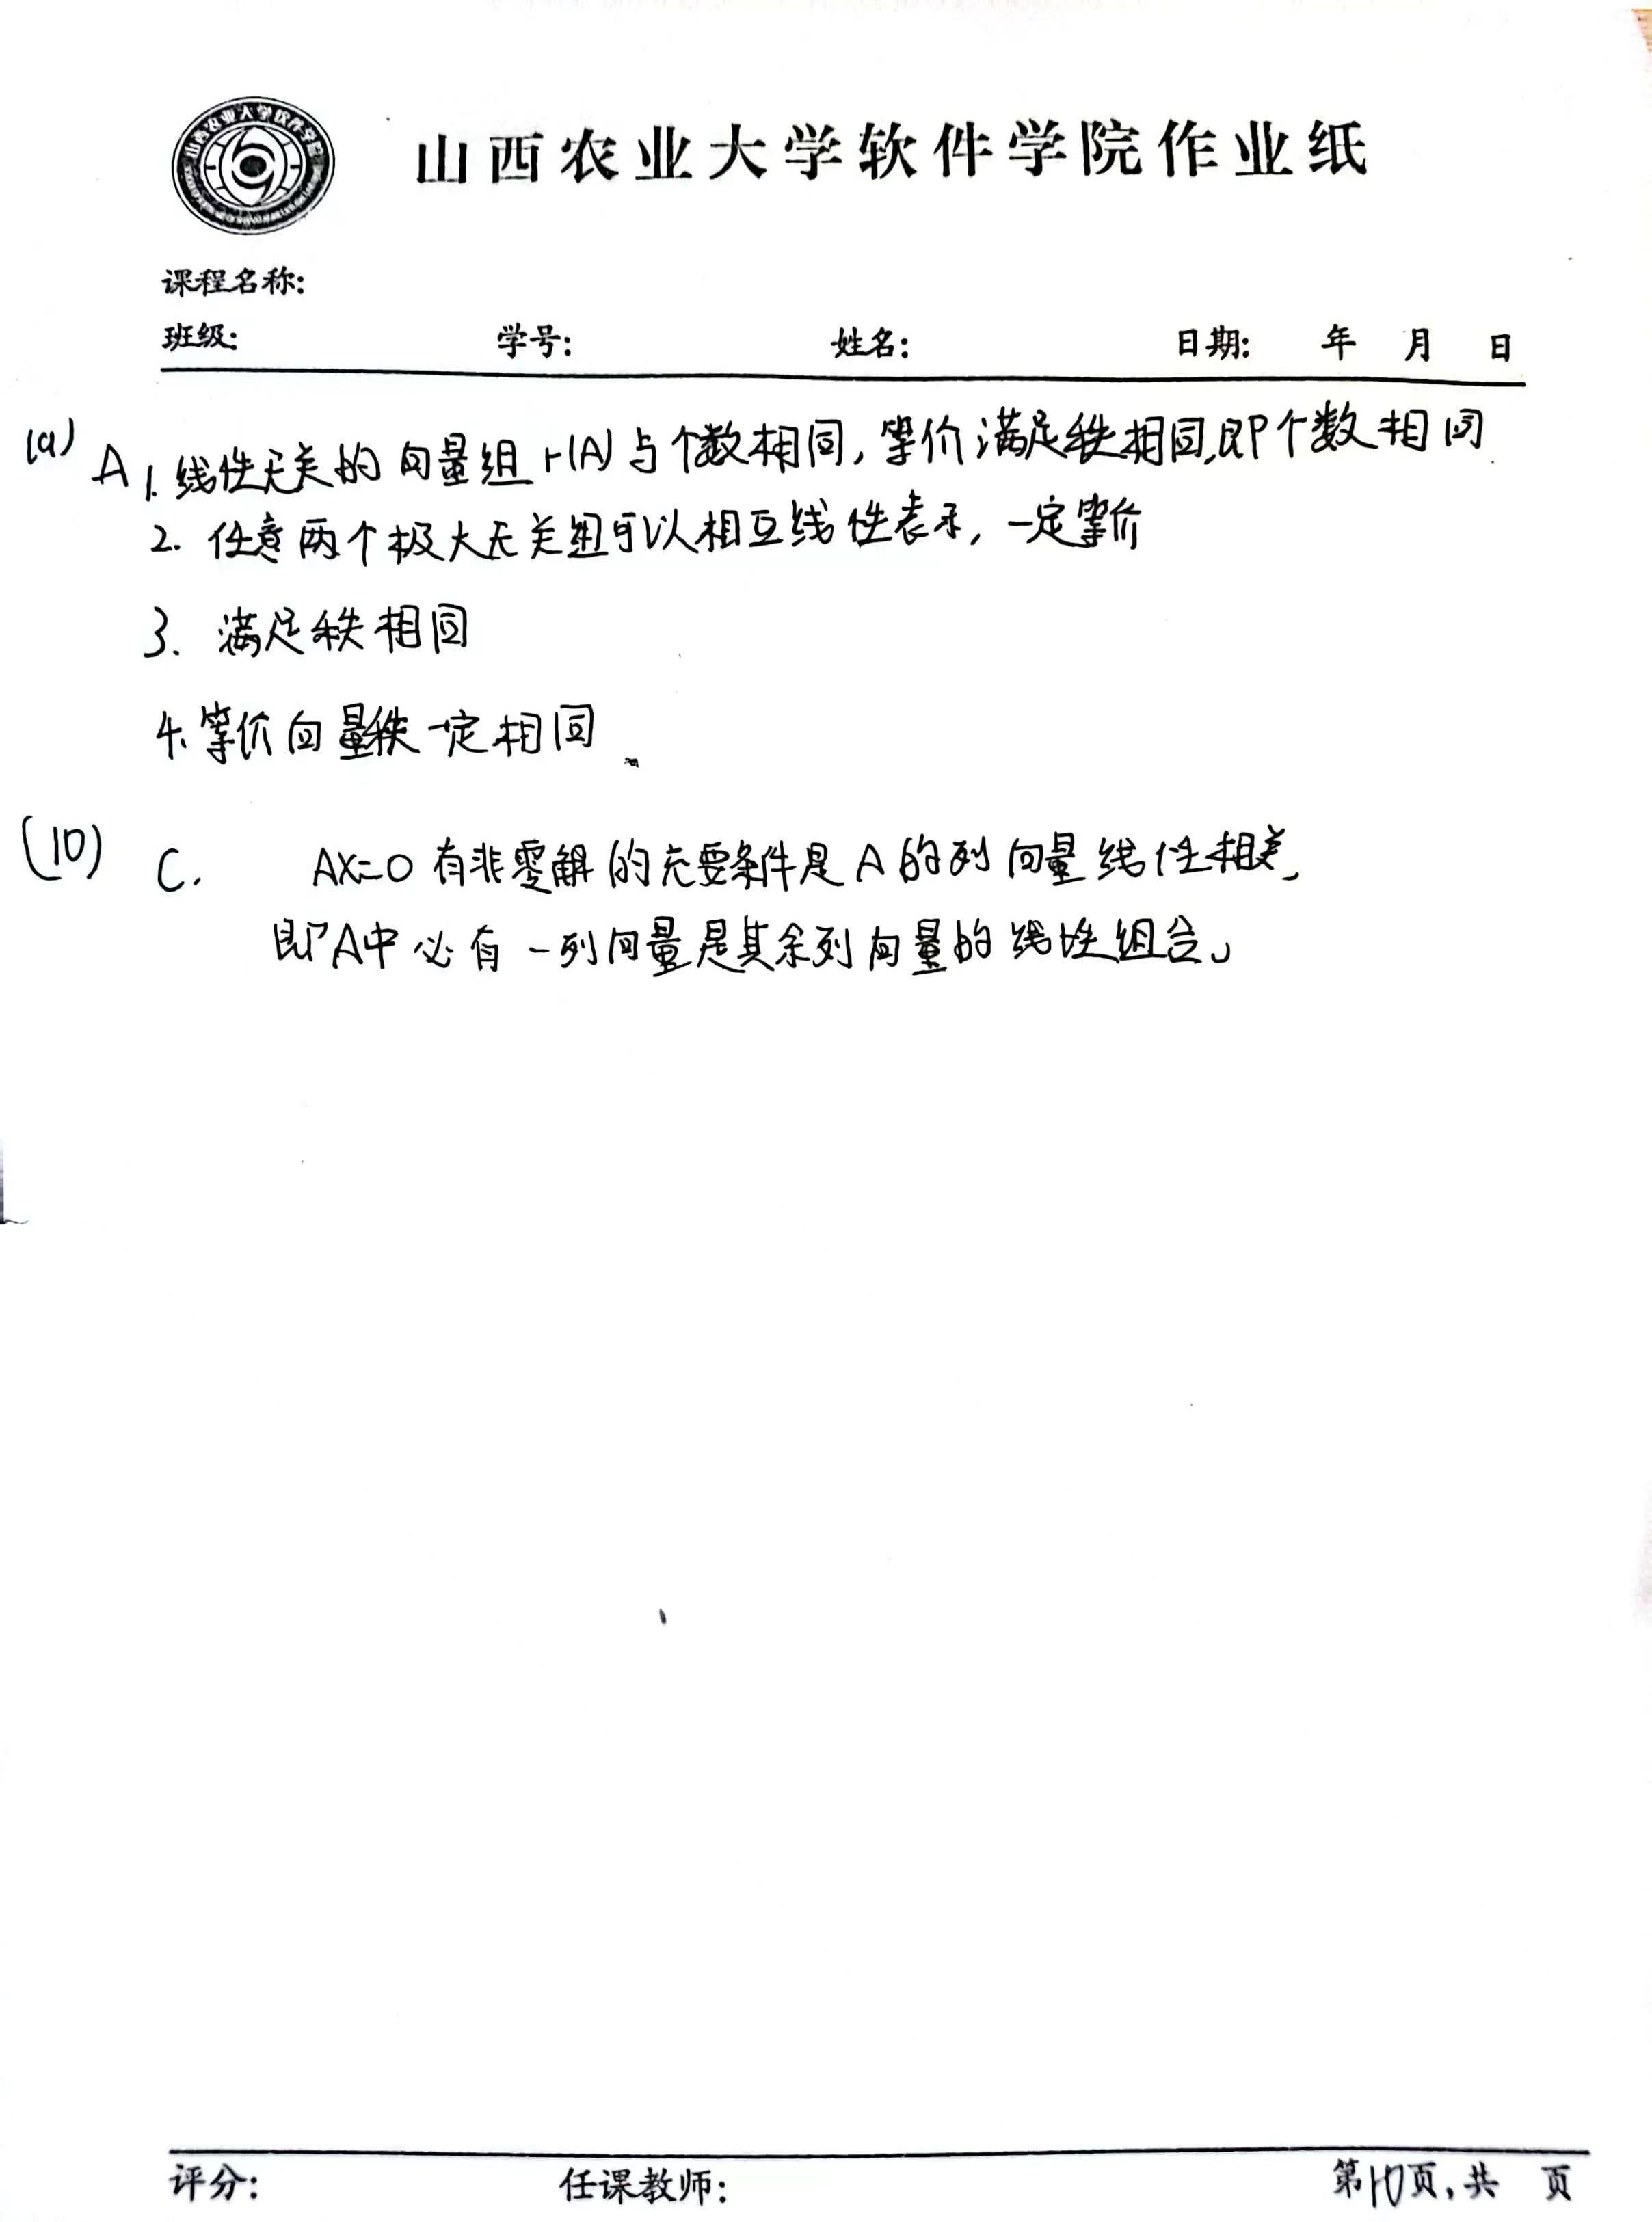 山西农业大学软件学院
山西农业大学软件学院作业纸
课程名称:
班级: 学号: 姓名: 日期: 年 月 日
(9) A 1. 线性无关的向量组 r(A) 与个数相同, 等价满足秩相同,即个数相同.
2. 任意两个极大无关组可以相互线性表示, 一定等价
3. 满足秩相同
4. 等价向量秩一定相同
(10) C. AX=0 有非零解的充要条件是 A 的列向量线性相关,
即A中必有一列向量是其余列向量的线性组合。
评分: 任课教师: 第10页,共 页